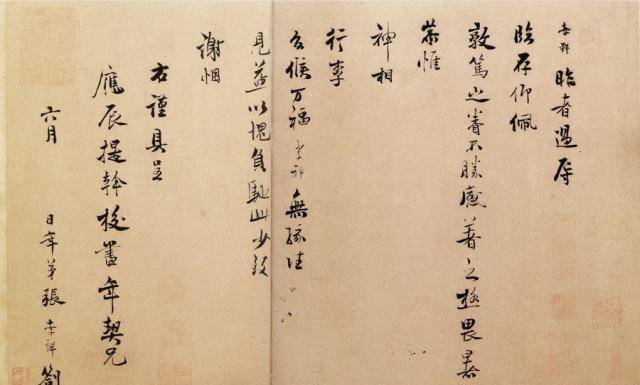 孝祥昨者過辱
臨存仰佩
敦篤之眷不勝感著之極畏暑
恭惟
神相
行李
台候万福孝祥無緣往
見益以愧負馳此少致
謝悃
右謹具呈
應辰提幹校書年契兄
六月
日年弟張孝祥劄